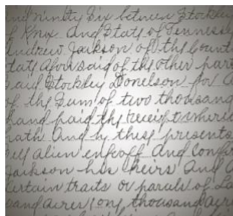 and ninety Six between Stockley
of Knox and State of Tennessee
Andrew Jackson of the Count
State aforesaid of the other part
said Stockley Donelson for
of the Sum of two thousand
hand paid the receipt
hath And by these presents
sell alien enfeoff and Confir
Jackson his Heirs And
certain traits or parcels of L
sand acres (one thousand acre